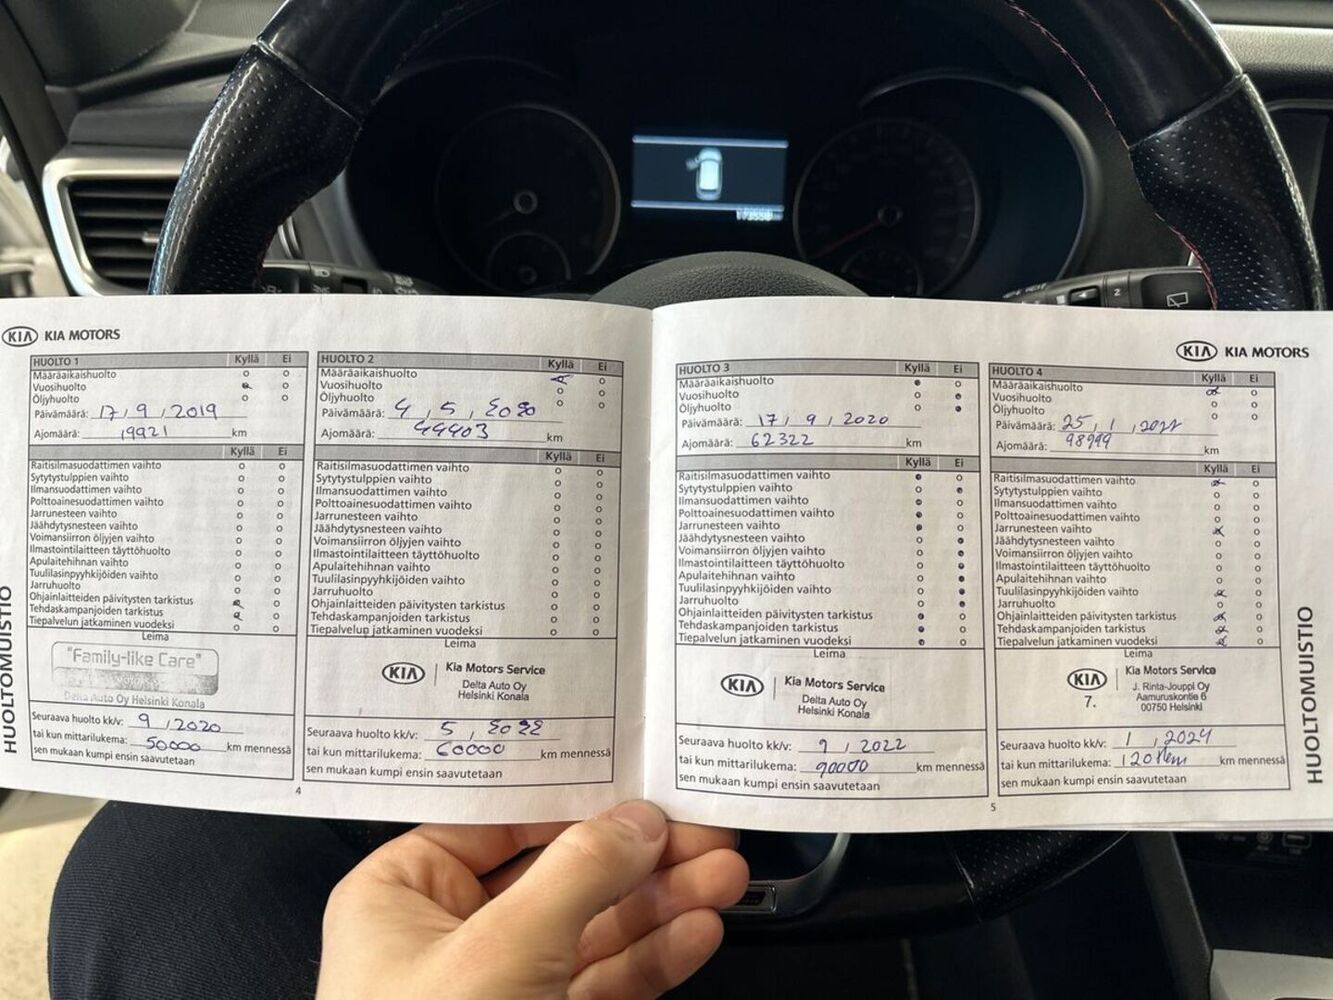 KIA KIA MOTORS
HUOLTO 1 Kyllä Ei
Määräaikaishuolto
Vuosihuolto
Öljyhuolto
Päivämäärä: 17, 9, 2019
Ajomäärä: 19921 km
Kyllä Ei
Raitisilmasuodattimen vaihto
Sytytystulppien vaihto
Ilmansuodattimen vaihto
Polttoainesuodattimen vaihto
Jarrunesteen vaihto
Jäähdytysnesteen vaihto
Voimansiirron öljyjen vaihto
Ilmastointilaitteen täyttöhuolto
Apulaitehihnan vaihto
Tuulilasinpyyhkijöiden vaihto
Jarruhuolto
Ohjainlaitteiden päivitysten tarkistus
Tehdaskampanjoiden tarkistus
Tiepalvelun jatkaminen vuodeksi
Leima
"Family-like Care"
Delta Auto Oy Helsinki Konala
Seuraava huolto kk/v: 9, 2020
tai kun mittarilukema: 50000 km mennessä
sen mukaan kumpi ensin saavutetaan
HUOLTO 2 Kyllä Ei
Määräaikaishuolto
Vuosihuolto
Öljyhuolto
Päivämäärä: 4, 5, 2020
Ajomäärä: 44403 km
Kyllä Ei
Raitisilmasuodattimen vaihto
Sytytystulppien vaihto
Ilmansuodattimen vaihto
Polttoainesuodattimen vaihto
Jarrunesteen vaihto
Jäähdytysnesteen vaihto
Voimansiirron öljyjen vaihto
Ilmastointilaitteen täyttöhuolto
Apulaitehihnan vaihto
Tuulilasinpyyhkijöiden vaihto
Jarruhuolto
Ohjainlaitteiden päivitysten tarkistus
Tehdaskampanjoiden tarkistus
Tiepalvelun jatkaminen vuodeksi
Leima
KIA Kia Motors Service
Delta Auto Oy
Helsinki Konala
Seuraava huolto kk/v: 5, 2022
tai kun mittarilukema: 60000 km mennessä
sen mukaan kumpi ensin saavutetaan
HUOLTOMUISTIO
4
KIA KIA MOTORS
HUOLTO 3 Kyllä Ei
Määräaikaishuolto
Vuosihuolto
Öljyhuolto
Päivämäärä: 17, 9, 2020
Ajomäärä: 62322 km
Kyllä Ei
Raitisilmasuodattimen vaihto
Sytytystulppien vaihto
Ilmansuodattimen vaihto
Polttoainesuodattimen vaihto
Jarrunesteen vaihto
Jäähdytysnesteen vaihto
Voimansiirron öljyjen vaihto
Ilmastointilaitteen täyttöhuolto
Apulaitehihnan vaihto
Tuulilasinpyyhkijöiden vaihto
Jarruhuolto
Ohjainlaitteiden päivitysten tarkistus
Tehdaskampanjoiden tarkistus
Tiepalvelun jatkaminen vuodeksi
Leima
KIA Kia Motors Service
Delta Auto Oy
Helsinki Konala
Seuraava huolto kk/v: 9, 2022
tai kun mittarilukema: 90000 km mennessä
sen mukaan kumpi ensin saavutetaan
HUOLTO 4 Kyllä Ei
Määräaikaishuolto
Vuosihuolto
Öljyhuolto
Päivämäärä: 25, 1, 2022
Ajomäärä: 98999 km
Kyllä Ei
Raitisilmasuodattimen vaihto
Sytytystulppien vaihto
Ilmansuodattimen vaihto
Polttoainesuodattimen vaihto
Jarrunesteen vaihto
Jäähdytysnesteen vaihto
Voimansiirron öljyjen vaihto
Ilmastointilaitteen täyttöhuolto
Apulaitehihnan vaihto
Tuulilasinpyyhkijöiden vaihto
Jarruhuolto
Ohjainlaitteiden päivitysten tarkistus
Tehdaskampanjoiden tarkistus
Tiepalvelun jatkaminen vuodeksi
Leima
KIA Kia Motors Service
7. J. Rinta-Jouppi Oy
Aamuruskontie 6
00750 Helsinki
Seuraava huolto kk/v: 1, 2024
tai kun mittarilukema: 120 tkm km mennessä
sen mukaan kumpi ensin saavutetaan
HUOLTOMUISTIO
5